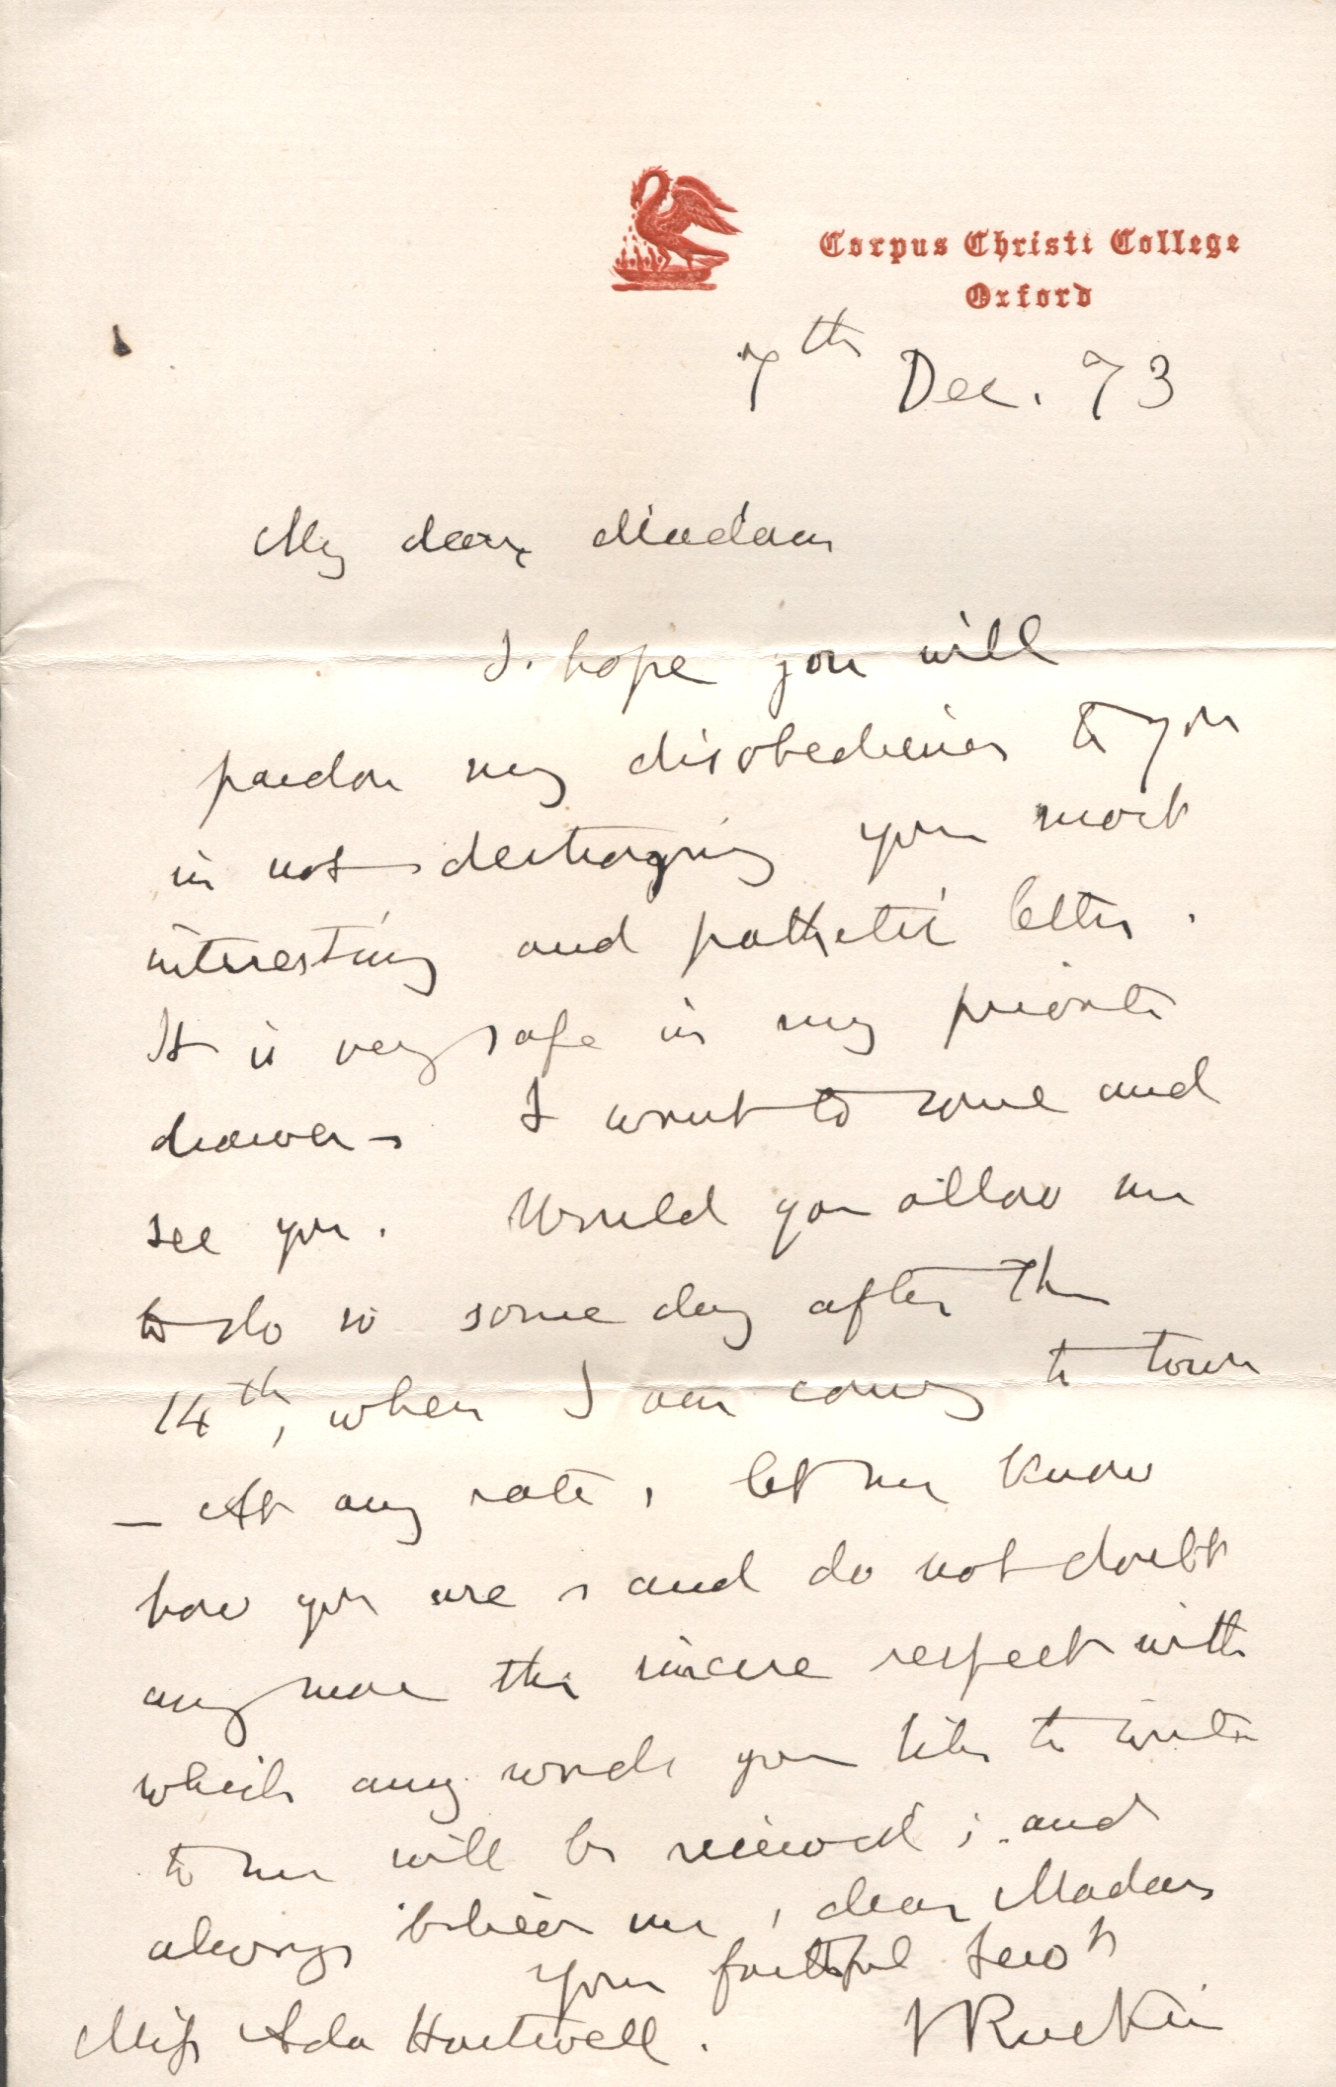 Corpus Christi College
Oxford
7th Dec. 73
My dear Madam
I hope you will
pardon my disobedience to you
in not destroying your most
interesting and pathetic letter.
It is very safe in my private
drawer – I want to come and
see you. Would you allow me
to do so some day after the
14th, when I am coming to town
– At any rate, let me know
how you are, and do not doubt
any more the sincere respect with
which any words you like to write
to me will be received; and
always believe me, dear Madam
Your faithful Servt
Miss Ada Hartwell. J Ruskin